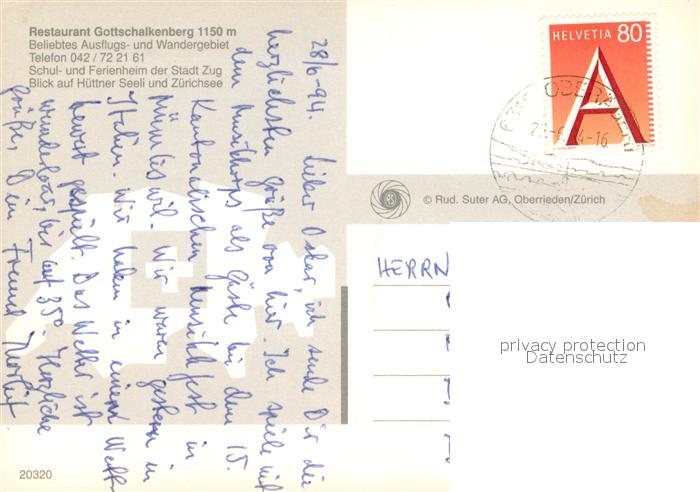 Restaurant Gottschalkenberg 1150 m
Beliebtes Ausflugs- und Wandergebiet
Telefon 042 / 72 21 61
Schul- und Ferienheim der Stadt Zug
Blick auf Hüttner Seeli und Zürichsee
28/6-94. Lieber Oskar, ich sende Dir die
herzlichsten Grüße von hier. Ich spiele mit
dem Musikkorps als Gäste bei dem 15.
Kantonalischen Musikfest in
Münliswil. Wir waren gestern in
Italien. Wir haben in einem Wett-
bewerb gespielt. Das Wetter ist
wunderbar, bis auf 35° Herzliche
Grüße Dein Freund
HELVETIA 80
A
OBERÄGERI
© Rud. Suter AG, Oberrieden/Zürich
HERRN
privacy protection
Datenschutz
20320